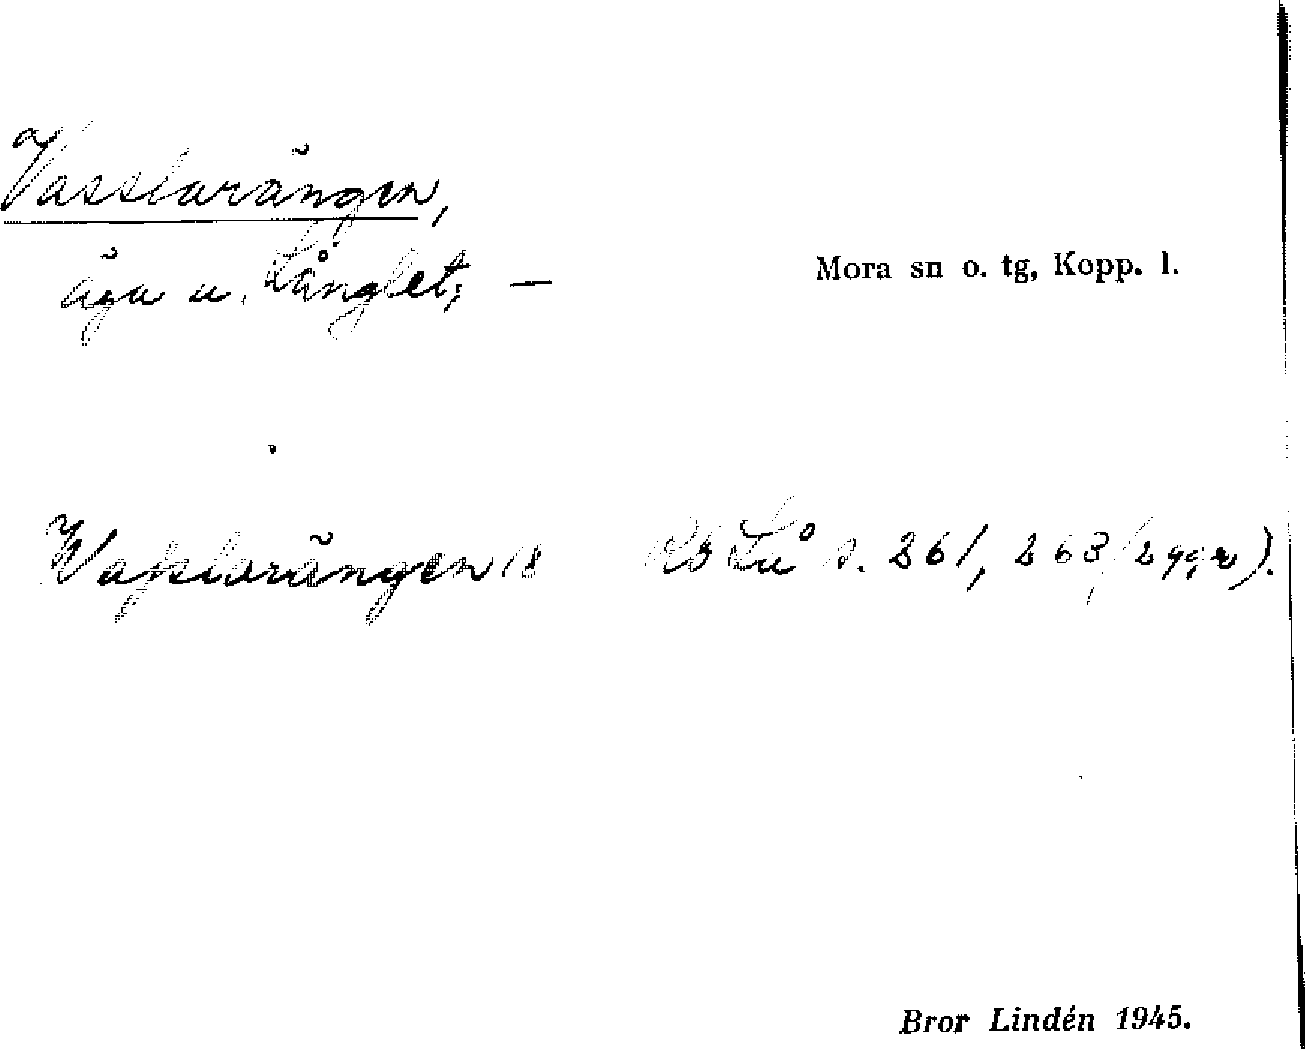 Vasslorängen,
äga u. Långlet; —
Mora sn o. tg, Kopp. l.
Wasslorängen 18 RB Lu° s. 261, 263, (2 ggr).
Bror Lindén 1945.